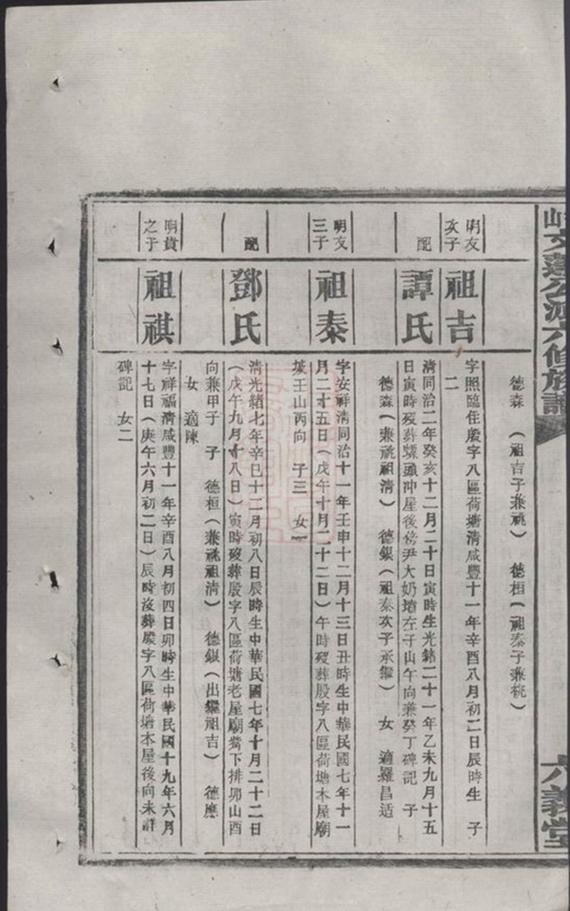 文蓮公派六修族譜
六義堂
德森 (祖吉子兼祧) 德桓 (祖泰子兼祧)
明友
次子
祖吉
字照臨住殷字八區荷塘清咸豐十一年辛酉八月初二日辰時生 子
二
配
譚氏
清同治二年癸亥十二月二十日寅時生光緒二十一年乙未九月十五
日寅時歿葬螺頭沖屋後傍尹大奶墳左子山午向兼癸丁碑記 子
德森(兼祧祖清) 德銀(祖泰次子承繼) 女 適羅昌适
明友
三子
祖泰
字安祥清同治十一年壬申十二月十三日丑時生中華民國七年十一
月二十五日(戊午十月二十二日)午時歿葬殷字八區荷塘本屋廟
坡壬山丙向 子三 女一
配
鄧氏
清光緒七年辛巳十二月初八日辰時生中華民國七年十月二十二日
(戊午九月十八日)寅時歿葬殷字八區荷塘老屋廟下排卯山酉
向兼甲子 子 德桓(兼祧祖清) 德銀(出繼祖吉) 德應
女 適陳
明貴
之子
祖祺
字祥福清咸豐十一年辛酉八月初四日卯時生中華民國十九年六月
十七日(庚午六月初二日)辰時沒葬殷字八區荷塘本屋後向未詳
碑記 女二